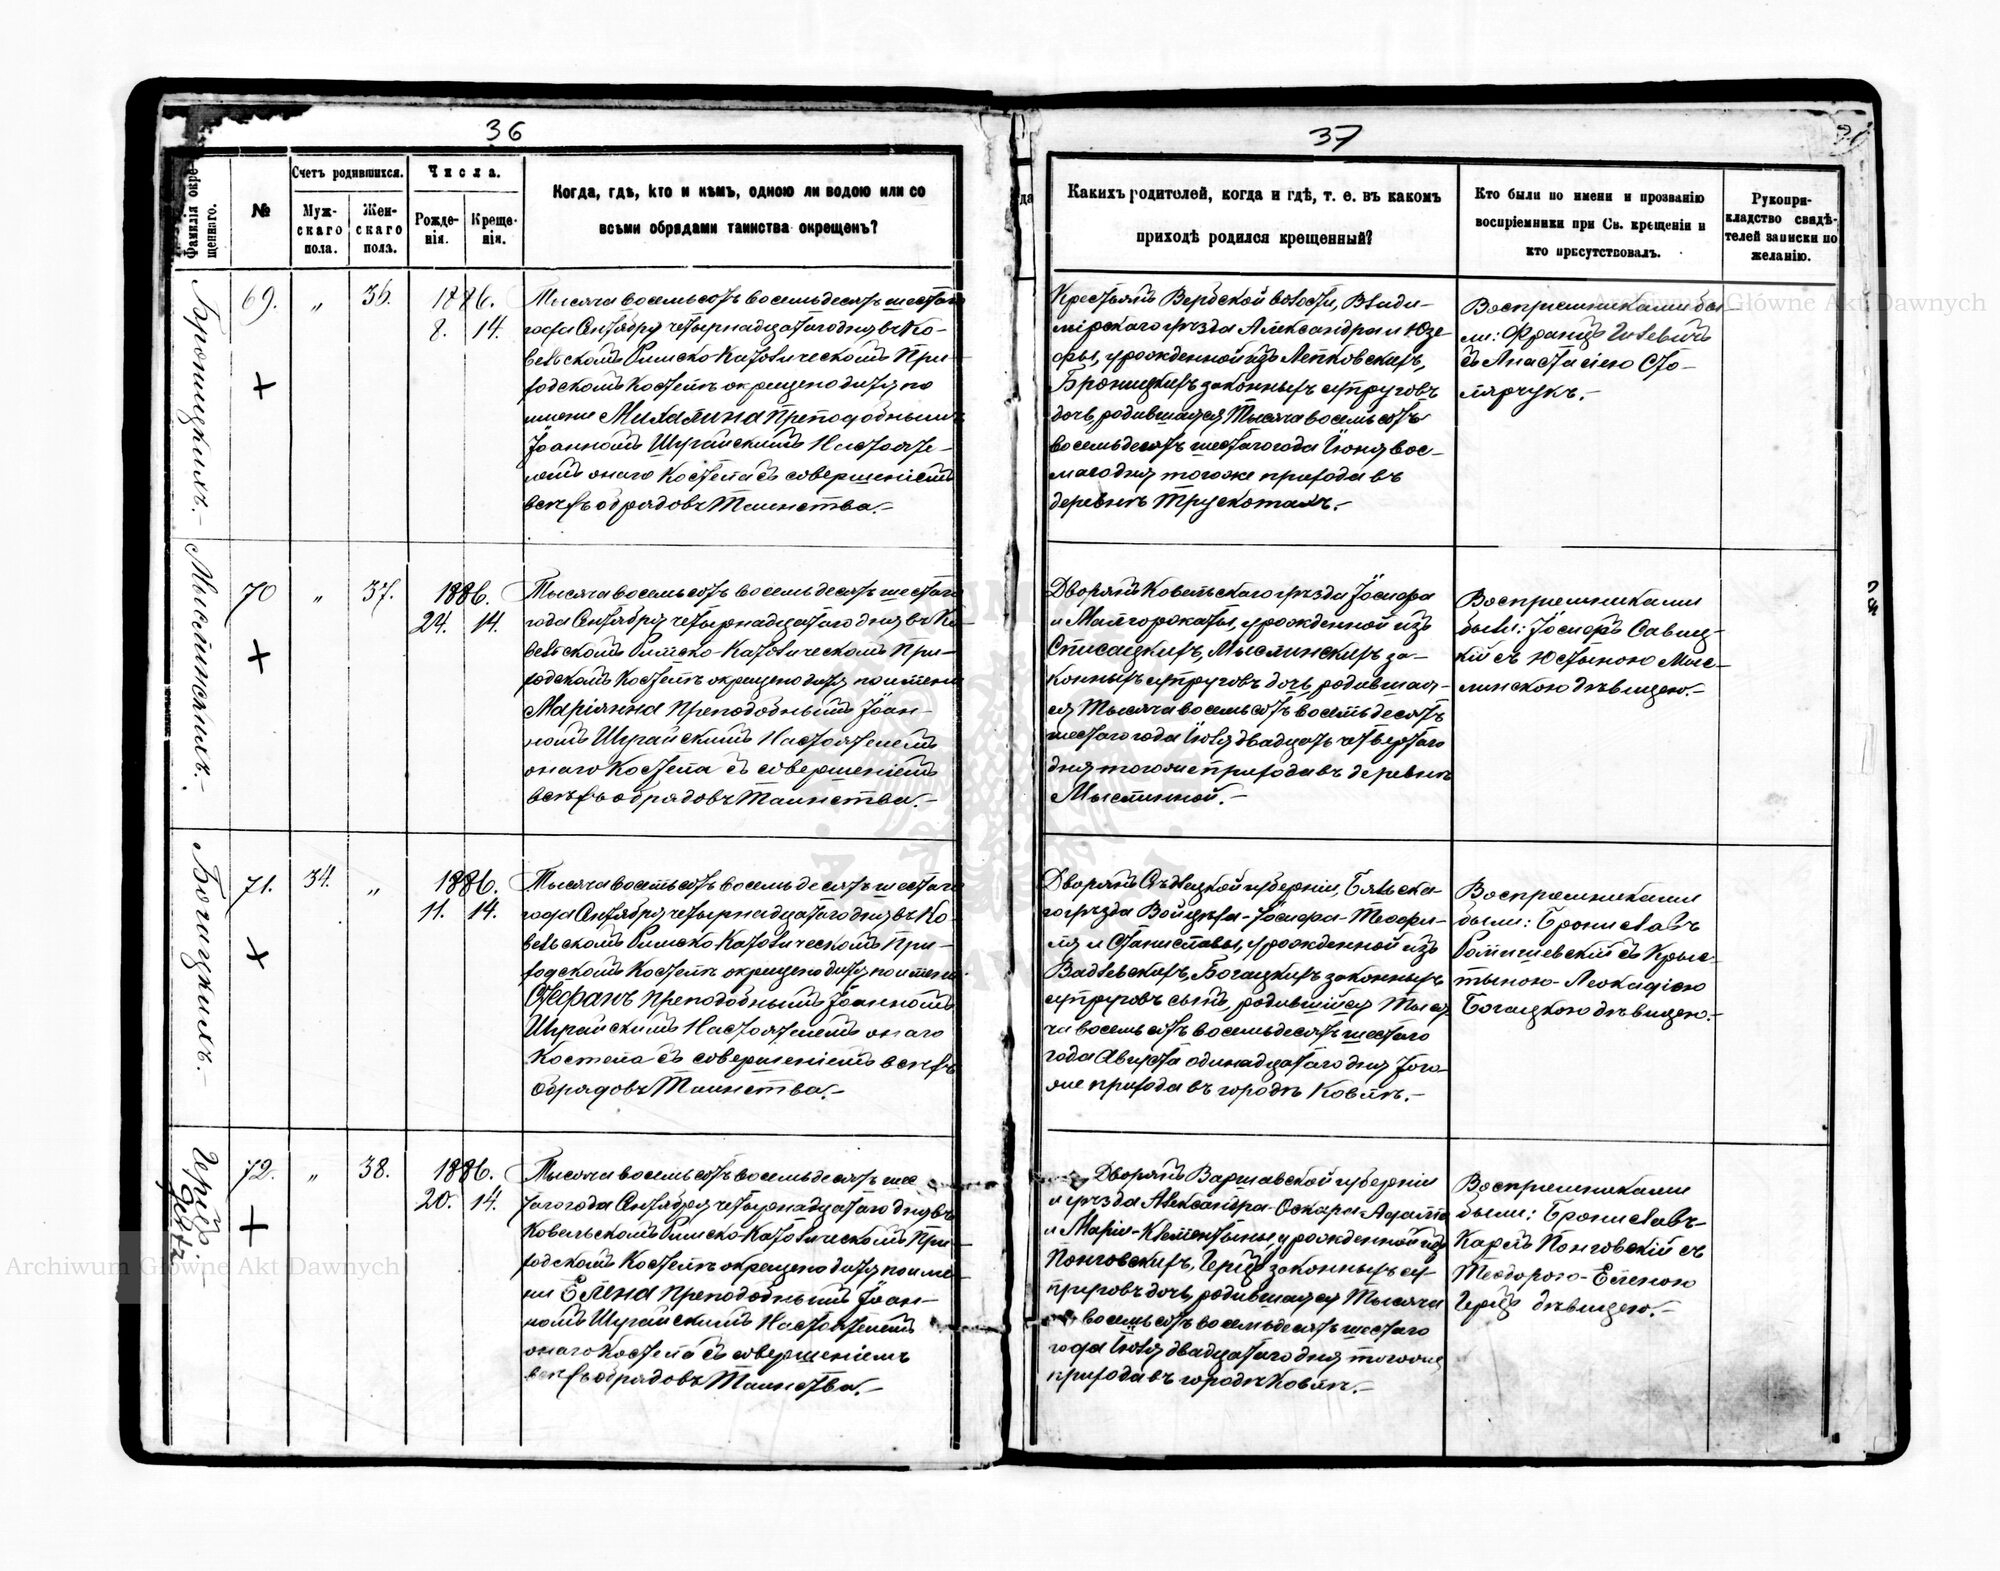 36
Фамилія окрещеннаго.
№
Счетъ родившихся.
Мужскаго пола.
Женскаго пола.
Числа.
Рожденія.
Крещенія.
Когда, гдѣ, кто и кѣмъ, одною ли водою или со
всѣми обрядами таинства окрещенъ?
Броницкихъ.-
69.
„
36.
1886.
8. 14.
Тысяча восемьсотъ восемьдесятъ шестаго
года Октября четырнадцатаго дня въ Ко-
вельскомъ Римско-Католическомъ При-
ходскомъ Костелѣ окрещено дитя по
имени Михалина Преподобнымъ
Іоанномъ Настояте-
лемъ онаго Костела съ совершеніемъ
всѣхъ обрядовъ Таинства.-
Мыслинскихъ.-
70
„
37.
1886.
24. 14.
Тысяча восемьсотъ восемьдесятъ шестаго
года Октября четырнадцатаго дня въ Ко-
вельскомъ Римско-Католическомъ При-
ходскомъ Костелѣ окрещено дитя по имени
Маріянна Преподобнымъ Іоан-
номъ Настоятелемъ
онаго Костела съ совершеніемъ
всѣхъ обрядовъ Таинства.-
Богацкихъ.-
71.
34.
„
1886.
11. 14.
Тысяча восемьсотъ восемьдесятъ шестаго
года Октября четырнадцатаго дня въ Ко-
вельскомъ Римско-Католическомъ При-
ходскомъ Костелѣ окрещено дитя по имени
Стефанъ Преподобнымъ Іоанномъ
Настоятелемъ онаго
Костела съ совершеніемъ всѣхъ
обрядовъ Таинства.-
72.
„
38.
1886.
20. 14.
Тысяча восемьсотъ восемьдесятъ шес-
таго года Октября четырнадцатаго дня въ
Ковельскомъ Римско-Католическомъ При-
ходскомъ Костелѣ окрещено дитя по име-
ни Елена Преподобнымъ Іоан-
номъ Настоятелемъ
онаго Костела съ совершеніемъ
всѣхъ обрядовъ Таинства.-
37
Какихъ родителей, когда и гдѣ, т. е. въ какомъ
приходѣ родился крещенный?
Кто были по имени и прозванію
воспріемники при Св. крещеніи и
кто присутствовалъ.
Рукопри-
кладство свидѣ-
телей записки по
желанію.
Крестьянъ Вербской волости, Влади-
мірскаго уѣзда Александра и Юзе-
фы, урожденной изъ Лепковскихъ,
Броницкихъ законныхъ супруговъ
дочь, родившаяся Тысяча восемьсотъ
восемьдесятъ шестаго года Іюня вос-
маго дня того же прихода въ
деревнѣ Трускотахъ.-
Воспріемниками бы-
ли: Францъ
съ Анастасіею Сто-
лярчукъ.-
Дворянъ Ковельскаго уѣзда Іосифа
и Малгоржаты, урожденной изъ
Мыслинскихъ за-
конныхъ супруговъ дочь, родившая-
ся Тысяча восемьсотъ восемьдесятъ
шестаго года Іюля двадцать четвертаго
дня того же прихода въ деревнѣ
Мыслинной.-
Воспріемниками
были: Іосифъ Савиц-
кій съ Юстыною Мыс-
линскою дѣвицею.-
Дворянъ Сѣдлецкой губерніи, Бяльска-
го уѣзда Войцѣха-Іосифа-Теофи-
ля и Станиславы, урожденной изъ
Богацкихъ законныхъ
супруговъ сынъ, родившійся Тыся-
ча восемьсотъ восемьдесятъ шестаго
года Августа одинадцатаго дня того-
же прихода въ городѣ Ковлѣ.-
Воспріемниками
были: Брониславъ
съ Крыс-
тыною-Леокадіею
Богацкою дѣвицею.-
Дворянъ Варшавской губерніи
и уѣзда Александра-Оскара-Адама
и Маріи-Клементыны, урожденной изъ
Понговскихъ, Герцъ законныхъ су-
пруговъ дочь, родившаяся Тысяча
восемьсотъ восемьдесятъ шестаго
года Іюля двадцатаго дня того же
прихода въ городѣ Ковлѣ.-
Воспріемниками
были: Брониславъ-
Карлъ Понговскій съ
Теодорою-Еленою
Герцъ дѣвицею.-
Archiwum Główne Akt Dawnych
Archiwum Główne Akt Dawnych